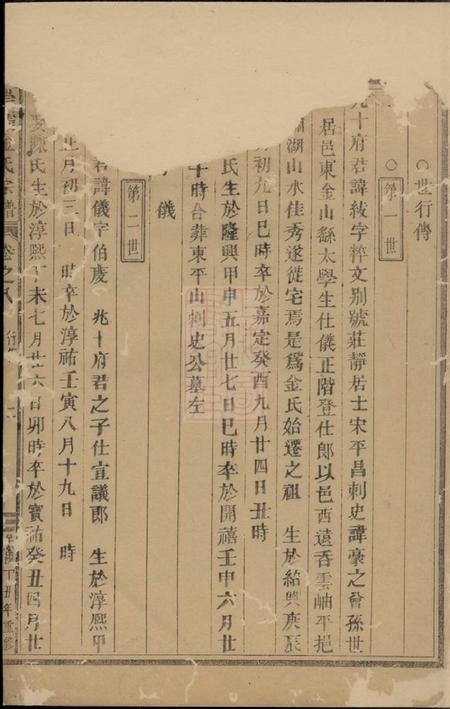 世行傳
第一世
九十府君諱紱字粹文別號莊靜居士宋平昌刺史諱豪之曾孫世
居邑東金山繇太學生仕儀正階登仕郎以邑西遠吞雲岫平挹
湖山水佳秀遂徙宅焉是爲金氏始遷之祖 生於紹興庚辰
初九日巳時卒於嘉定癸酉九月廿四日丑時
氏生於隆興甲申五月廿七日巳時卒於開禧壬申六月廿
十時合葬東平山刺史公墓左
儀
第二世
君諱儀字伯慶 兆十府君之子仕宣議郎 生於淳熙甲
正月初三日 時卒於淳祐壬寅八月十九日 時
氏生於淳熙丁未七月廿六日卯時卒於寶祐癸丑四月廿
氏宗譜
卷之八
丁丑年重修